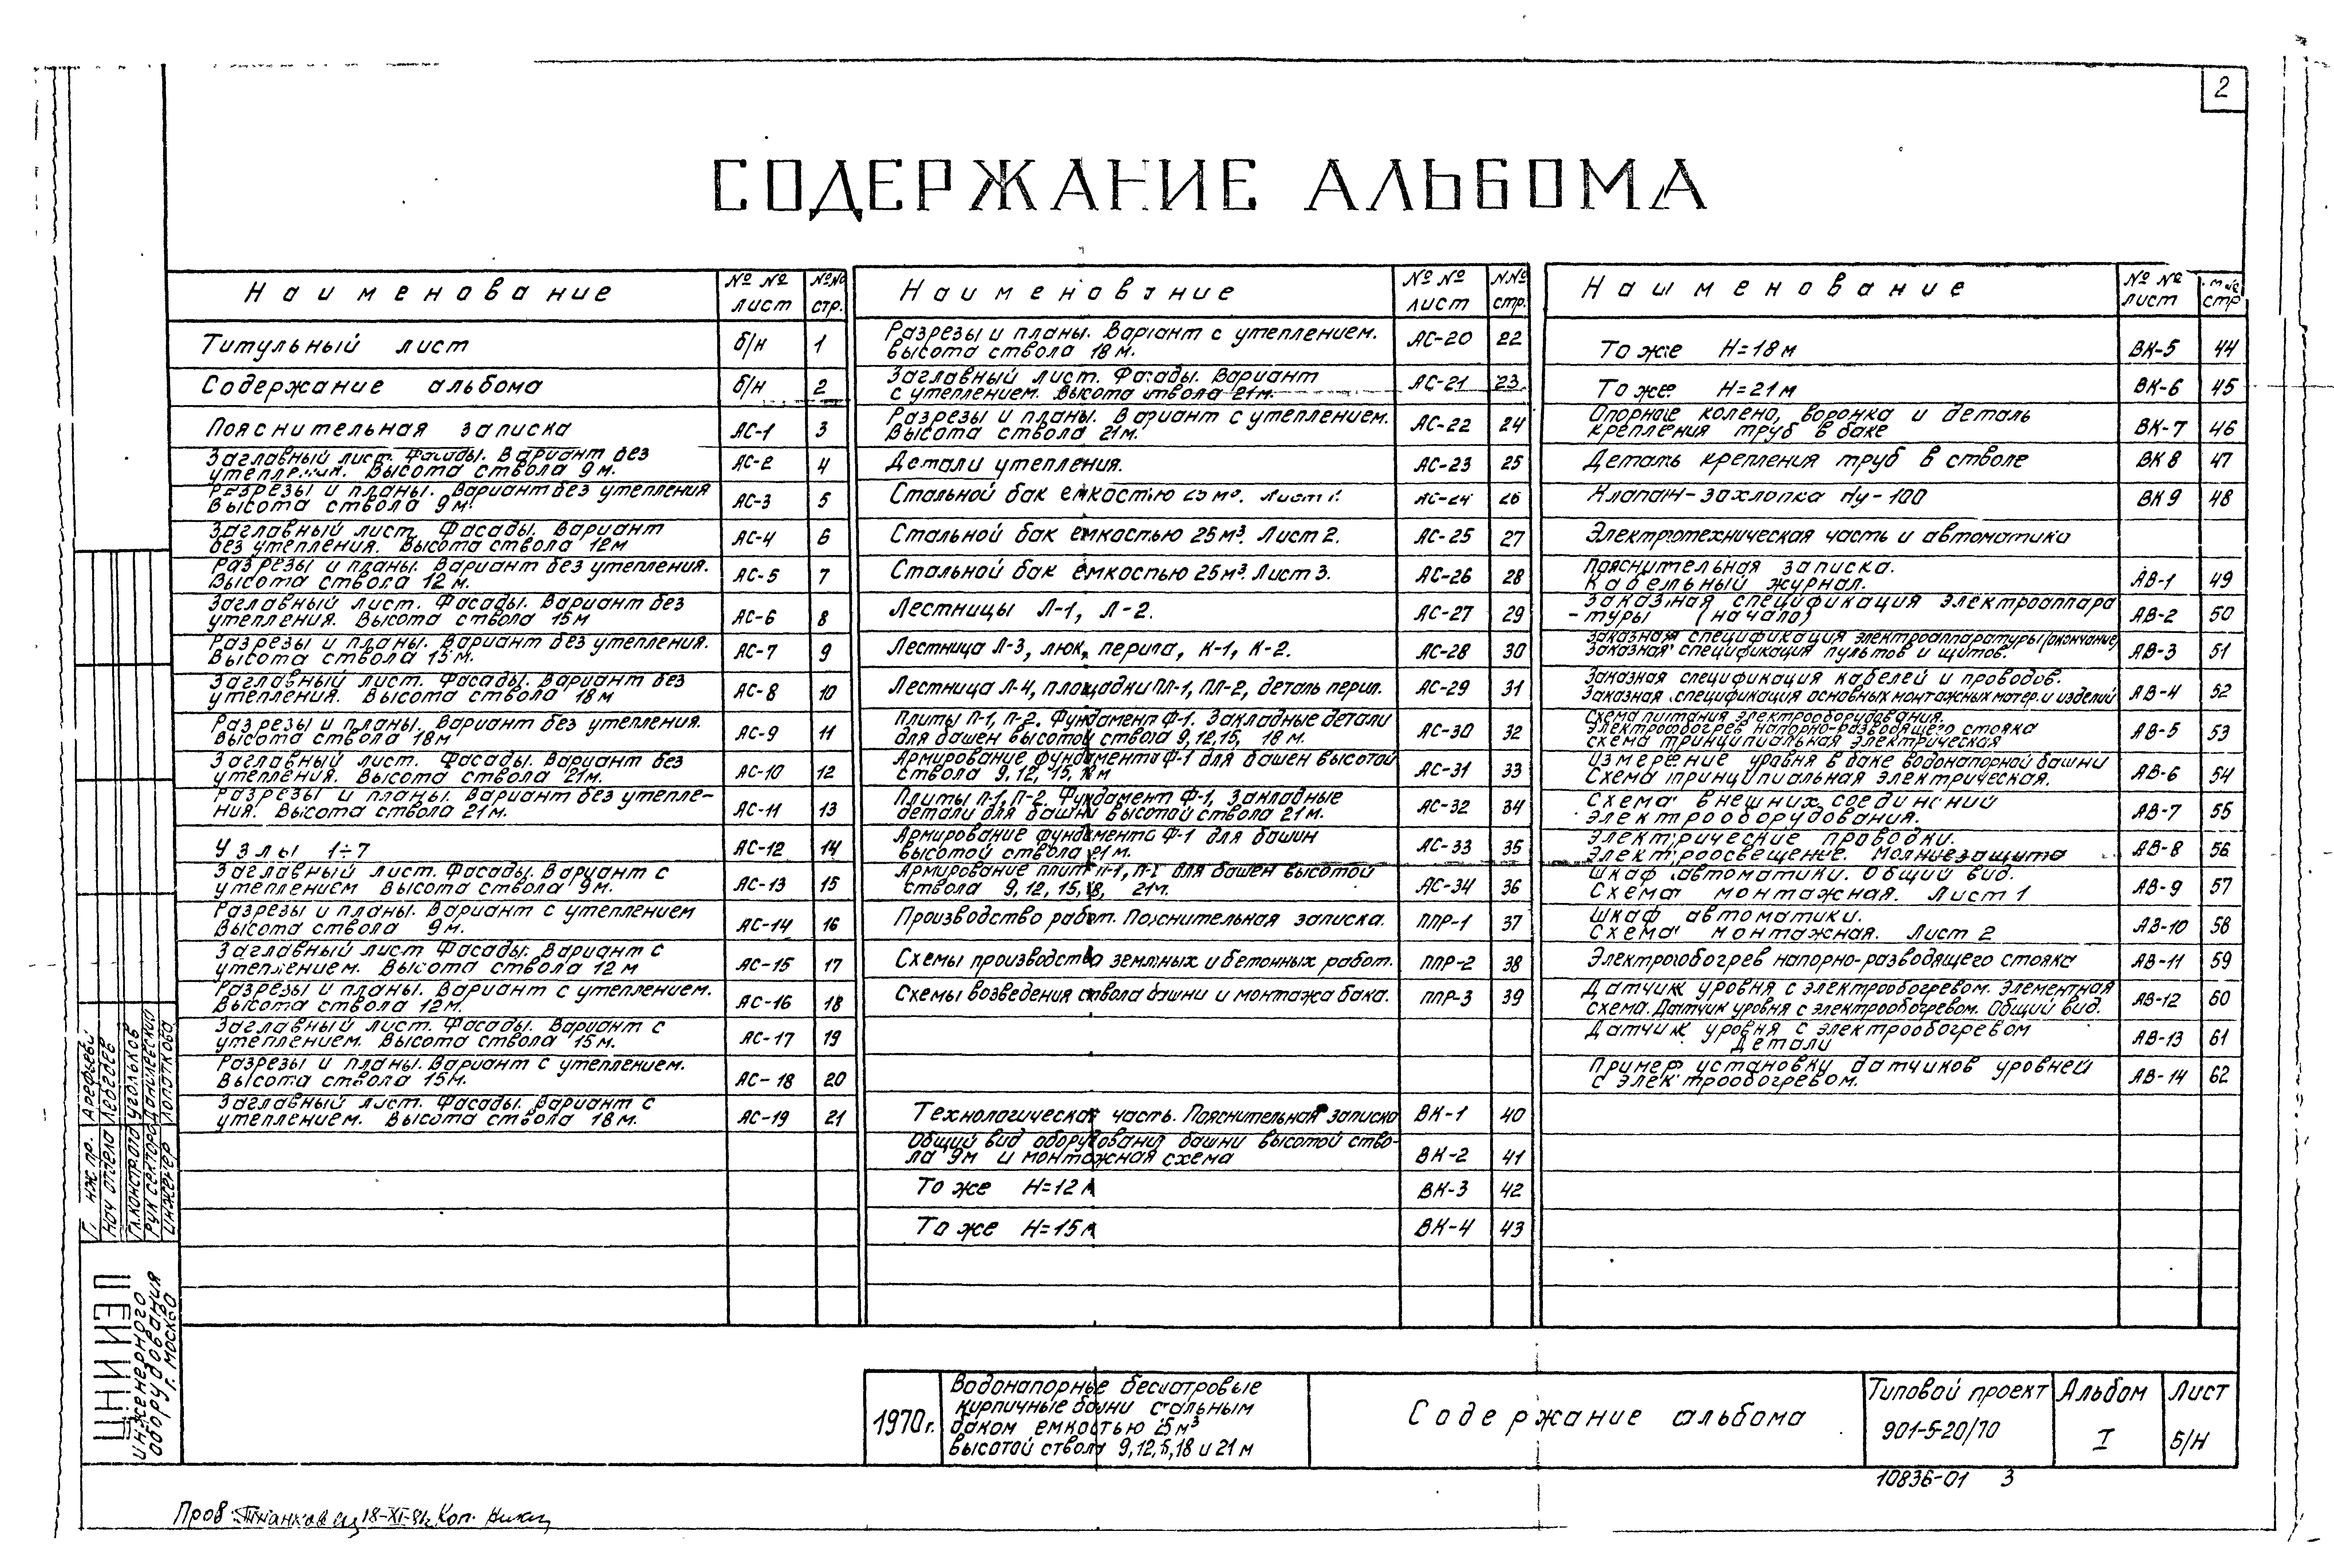 2
СОДЕРЖАНИЕ АЛЬБОМА
Наименование №№ лист №№ стр.
Титульный лист б/н 1
Содержание альбома б/н 2
Пояснительная записка АС-1 3
Заглавный лист. Фасады. Вариант без
утепления. Высота ствола 9м. АС-2 4
Разрезы и планы. Вариант без утепления
Высота ствола 9м. АС-3 5
Заглавный лист. Фасады. Вариант
без утепления. Высота ствола 12м АС-4 6
Разрезы и планы. Вариант без утепления.
Высота ствола 12м. АС-5 7
Заглавный лист. Фасады. Вариант без
утепления. Высота ствола 15м АС-6 8
Разрезы и планы. Вариант без утепления.
Высота ствола 15м. АС-7 9
Заглавный лист. Фасады. Вариант без
утепления. Высота ствола 18м АС-8 10
Разрезы и планы. Вариант без утепления.
Высота ствола 18м АС-9 11
Заглавный лист. Фасады. Вариант без
утепления. Высота ствола 21м. АС-10 12
Разрезы и планы. Вариант без утепле-
ния. Высота ствола 21м. АС-11 13
Узлы 1÷7 АС-12 14
Заглавный лист. Фасады. Вариант с
утеплением Высота ствола 9м. АС-13 15
Разрезы и планы. Вариант с утеплением
Высота ствола 9м. АС-14 16
Заглавный лист Фасады. Вариант с
утеплением. Высота ствола 12м АС-15 17
Разрезы и планы. Вариант с утеплением.
Высота ствола 12м. АС-16 18
Заглавный лист. Фасады. Вариант с
утеплением. Высота ствола 15м. АС-17 19
Разрезы и планы. Вариант с утеплением.
Высота ствола 15м. АС-18 20
Заглавный лист. Фасады. Вариант с
утеплением. Высота ствола 18м. АС-19 21
Наименование №№ лист №№ стр.
Разрезы и планы. Вариант с утеплением.
высота ствола 18м. АС-20 22
Заглавный лист. Фасады. Вариант
с утеплением. Высота ствола 21м. АС-21 23
Разрезы и планы. Вариант с утеплением.
Высота ствола 21м. АС-22 24
Детали утепления. АС-23 25
Стальной бак емкостью 25м³. Лист 1. АС-24 26
Стальной бак емкостью 25м³. Лист 2. АС-25 27
Стальной бак емкостью 25м³. Лист 3. АС-26 28
Лестницы Л-1, Л-2. АС-27 29
Лестница Л-3, люк, перила, К-1, К-2. АС-28 30
Лестница Л-4, площадки ПЛ-1, ПЛ-2, деталь перил. АС-29 31
Плиты П-1, П-2. Фундамент Ф-1. Закладные детали
для башен высотой ствола 9,12,15, 18м. АС-30 32
Армирование фундамента Ф-1 для башен высотой
ствола 9,12,15,18м АС-31 33
Плиты П-1, П-2. Фундамент Ф-1, Закладные
детали для башни высотой ствола 21м. АС-32 34
Армирование фундамента Ф-1 для башни
высотой ствола 21м. АС-33 35
Армирование плит П-1, П-2 для башен высотой
ствола 9,12,15,18, 21м. АС-34 36
Производство работ. Пояснительная записка. ППР-1 37
Схемы производства земляных и бетонных работ. ППР-2 38
Схемы возведения ствола башни и монтажа бака. ППР-3 39
Технологическая часть. Пояснительная записка ВК-1 40
Общий вид оборудования башни высотой ство-
ла 9м и монтажная схема ВК-2 41
То же Н=12м ВК-3 42
То же Н=15м ВК-4 43
Наименование №№ лист стр
То же Н=18м ВК-5 44
То же Н=21м ВК-6 45
Опорные колено, воронка и деталь
крепления труб в баке ВК-7 46
Деталь крепления труб в стволе ВК8 47
Клапан-захлопка Ду-100 ВК9 48
Электротехническая часть и автоматика
Пояснительная записка.
Кабельный журнал. АВ-1 49
Заказная спецификация электроаппара
-туры (начало) АВ-2 50
Заказная спецификация электроаппаратуры (окончание)
Заказная спецификация пультов и щитов. АВ-3 51
Заказная спецификация кабелей и проводов.
Заказная спецификация основных монтажных матер. и изделий АВ-4 52
Схема питания электрооборудования.
Электрообогрев напорно-разводящего стояка
схема принципиальная электрическая АВ-5 53
Измерение уровня в баке водонапорной башни
Схема принципиальная электрическая. АВ-6 54
Схема внешних соединений
электрооборудования. АВ-7 55
Электрические проводки.
Электроосвещение. Молниезащита АВ-8 56
Шкаф автоматики. Общий вид.
Схема монтажная. Лист 1 АВ-9 57
Шкаф автоматики.
Схема монтажная. Лист 2 АВ-10 58
Электрообогрев напорно-разводящего стояка АВ-11 59
Датчик уровня с электрообогревом. Элементная
схема. Датчик уровня с электрообогревом. Общий вид. АВ-12 60
Датчик уровня с электрообогревом
Детали АВ-13 61
Пример установки датчиков уровней
с электрообогревом. АВ-14 62
нж пр. Арефьев
Нач отдела Лебедев
Гл.констр. Угольков
Рук сектора Данилевский
инженер Лопаткова
ЦНИИЭП
инженерного
оборудования
г. Москва
1970г.
Водонапорные бесшатровые
кирпичные башни стальным
баком емкостью 25м³
высотой ствола 9,12,15,18 и 21м
Содержание альбома
Типовой проект
901-5-20/70
Альбом
I
Лист
Б/Н
10836-01 3
Пров 18-XI- Коп.